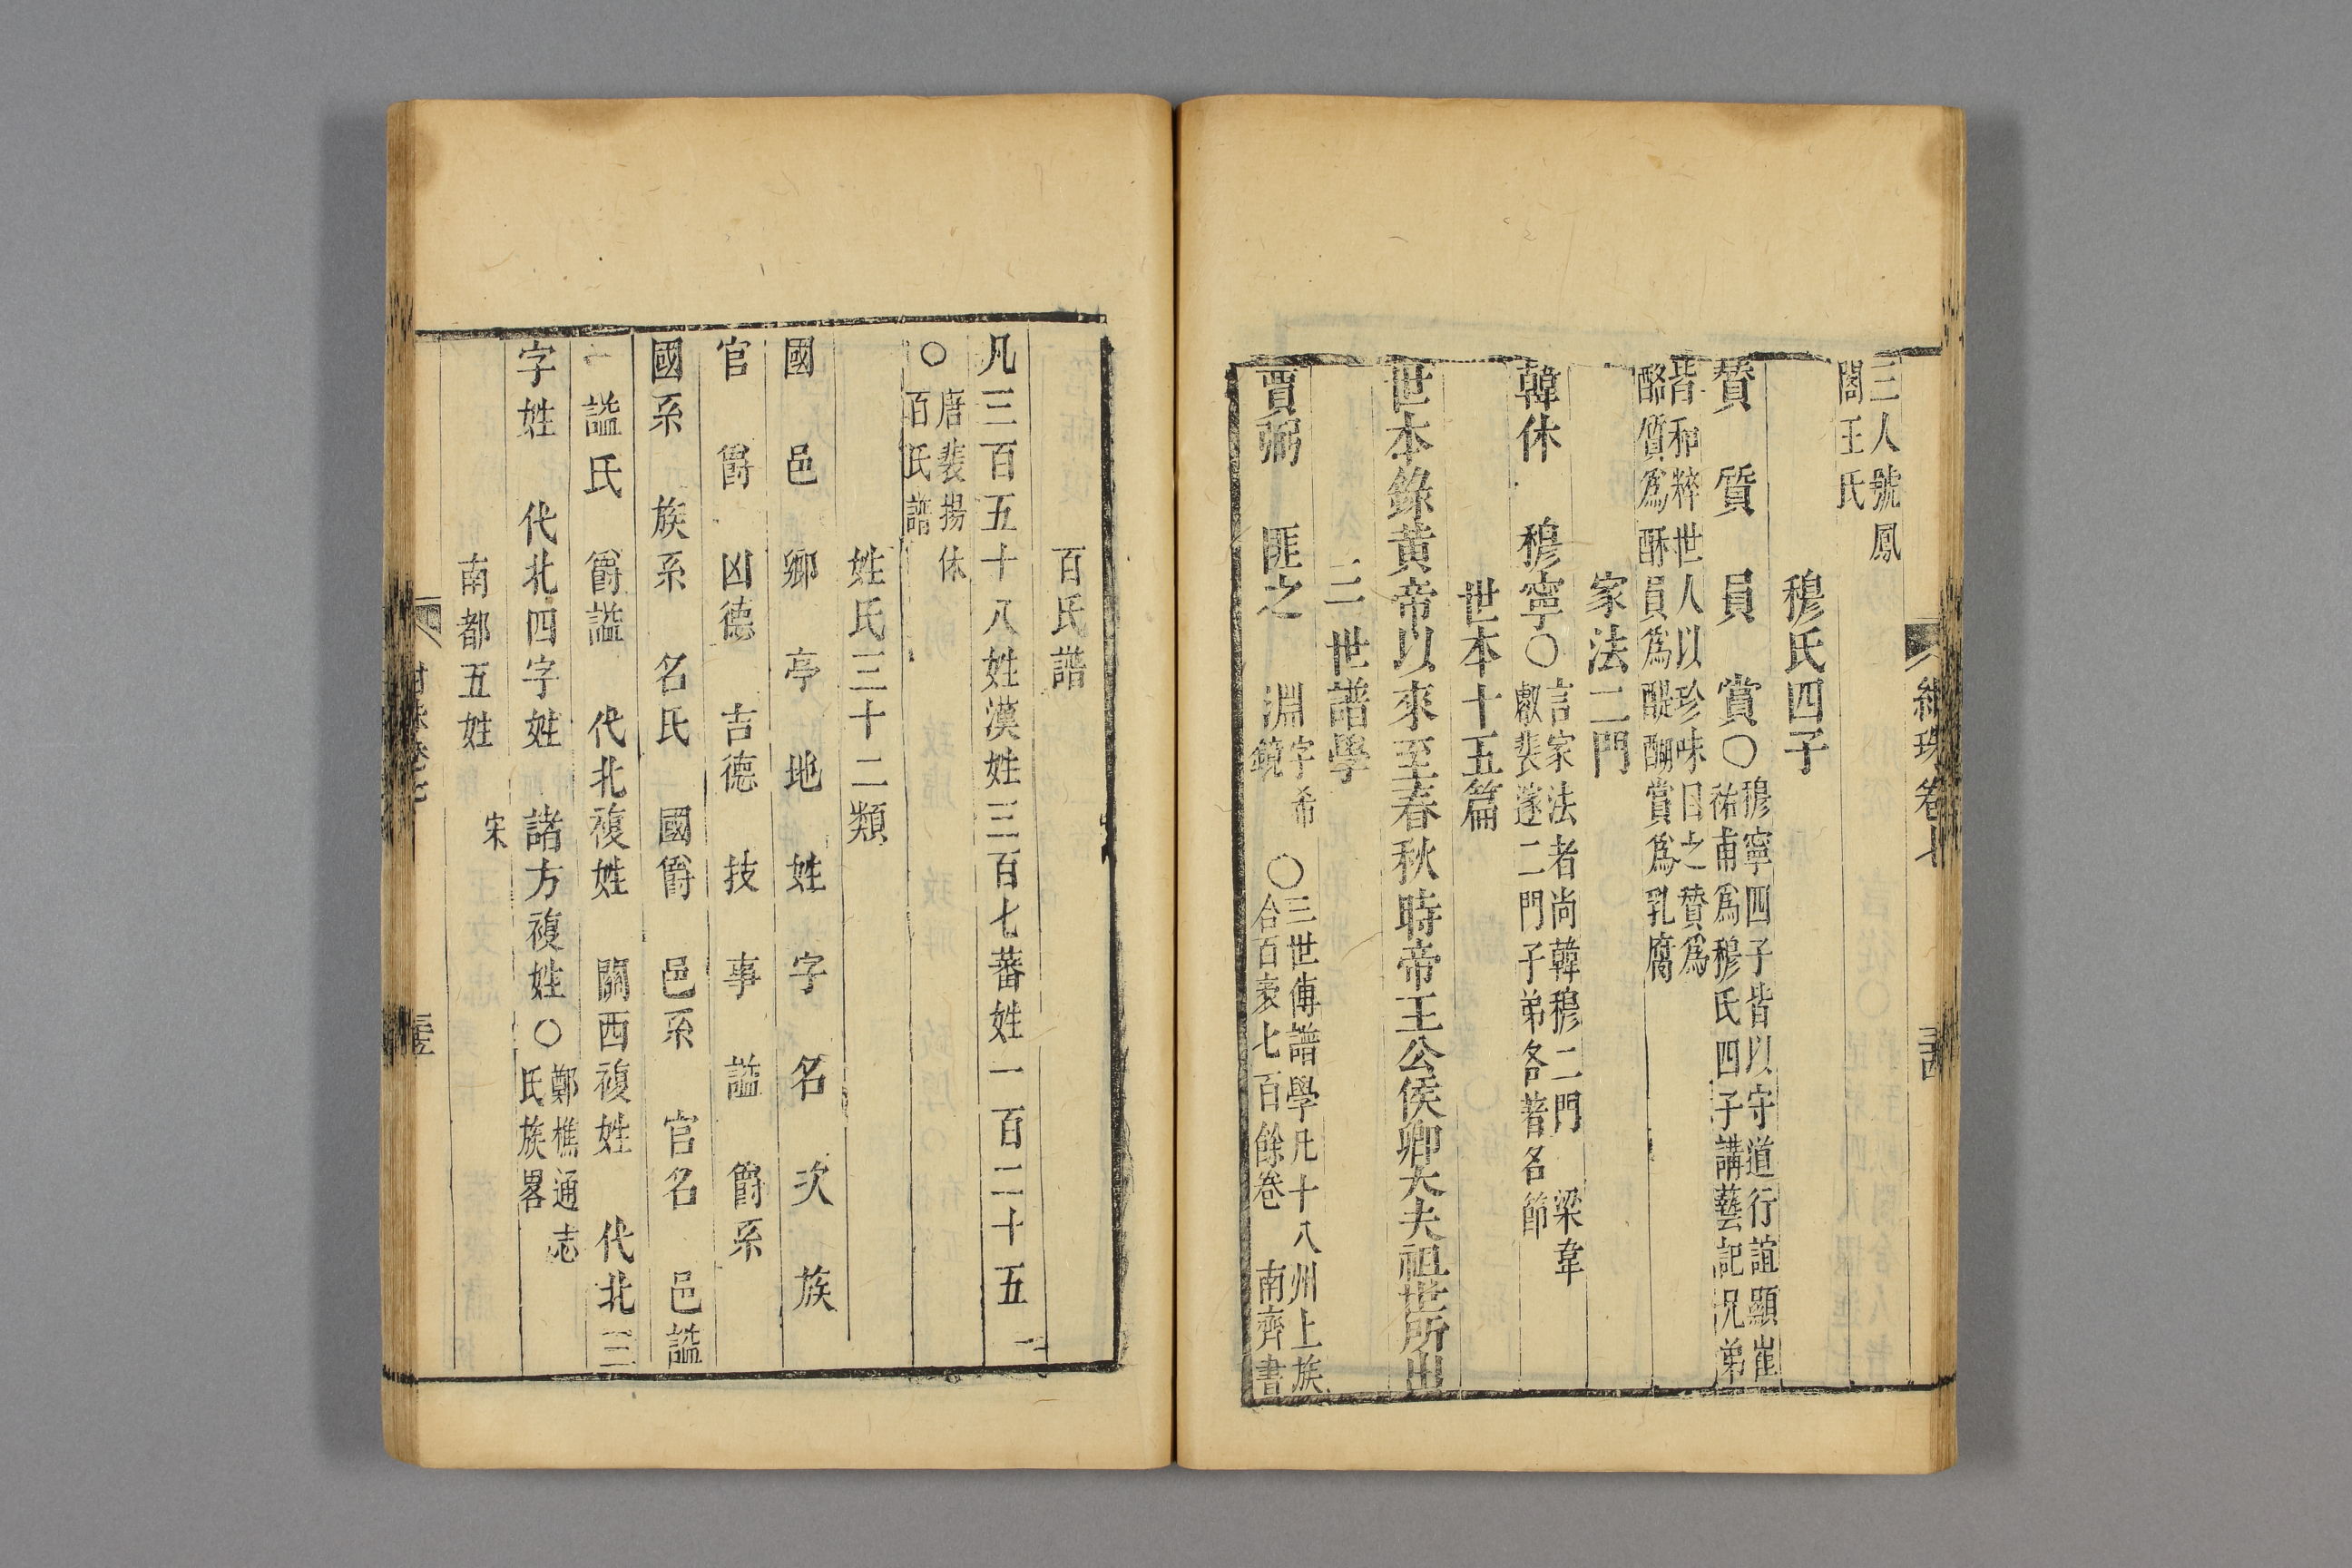 紺珠卷七
三人號鳳
閣王氏
穆氏四子
贊　質　員　賞〇穆寧四子皆以守道行誼顯崔
祐甫爲穆氏四子講藝記况弟
皆和粹世人以珍味目之贊爲
酪質爲酥員爲醍醐賞爲乳腐
家法二門
韓休　穆寧〇言家法者尚韓穆二門　梁韋
巚裴遂二門子弟各著名節
世本十五篇
世本錄黄帝以來至春秋時帝王公侯卿大夫祖世所出
三世譜學
賈弼　匪之　淵字希
鏡　〇三世傳譜學凡十八州上族
合百家七百餘卷　南齊書
百氏譜
凡三百五十八姓漢姓三百七蕃姓一百二十五
〇唐裴揚休
百氏譜
姓氏三十二類
國　邑　鄉　亭　地　姓　字　名　次　族
官　爵　凶德　吉德　技　事　謚　爵系
國系　族系　名氏　國爵　邑系　官名　邑謚
謚氏　爵謚　代北複姓　關西複姓　代北三
字姓　代北四字姓　諸方複姓〇鄭樵通志
氏族畧
南都五姓　宋